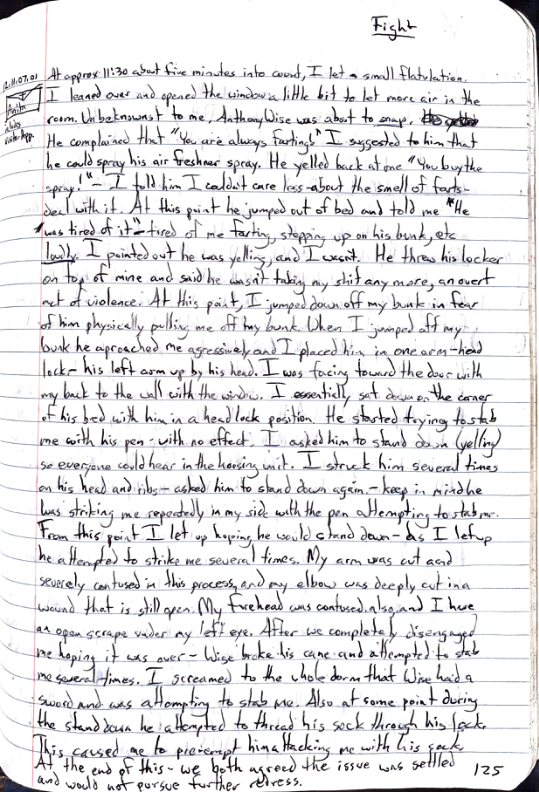 Fight
At approx 11:30 about five minutes into count, I let a small flatulation.
I leaned over and opened the window a little bit to let more air in the
room. Unbeknownst to me, Anthony Wise was about to snap.
He complained that "You are always farting!" I suggested to him that
he could spray his air freshner spray. He yelled back at me "You buy the
spray!" - I told him I couldn't care less about the smell of farts -
deal with it. At this point he jumped out of bed and told me "He
was tired of it" - tired of me farting, stepping up on his bunk, etc
loudly. I pointed out he was yelling, and I wasn't. He threw his locker
on top of mine and said he wasn't taking my shit any more, an overt
act of violence. At this point, I jumped down off my bunk in fear
of him physically pulling me off my bunk. When I jumped off my
bunk he aproached me agressively and I placed him in one arm-head
lock - his left arm up by his head. I was facing toward the door with
my back to the wall with the window. I essentially sat down on the corner
of his bed with him in a head lock position. He started trying to stab
me with his pen - with no effect. I asked him to stand down (yelling)
so everyone could hear in the housing unit. I struck him several times
on his head and ribs - asked him to stand down again. - keep in mind he
was striking me repeatedly in my side with the pen attempting to stab me.
From this point I let up hoping he would stand down - as I let up
he attempted to strike me several times. My arm was cut and
severely contused in this process, and my elbow was deeply cut in a
wound that is still open. My forehead was contused also, and I have
an open scrape under my left eye. After we completely disengaged
me hoping it was over - Wise broke his cane and attempted to stab
me several times. I screamed to the whole dorm that Wise had a
sword and was attempting to stab me. Also at some point during
the stand down he attempted to thread his sock through his lock.
This caused me to preempt him attacking me with his sock.
At the end of this - we both agreed the issue was settled
and would not pursue further redress.
125